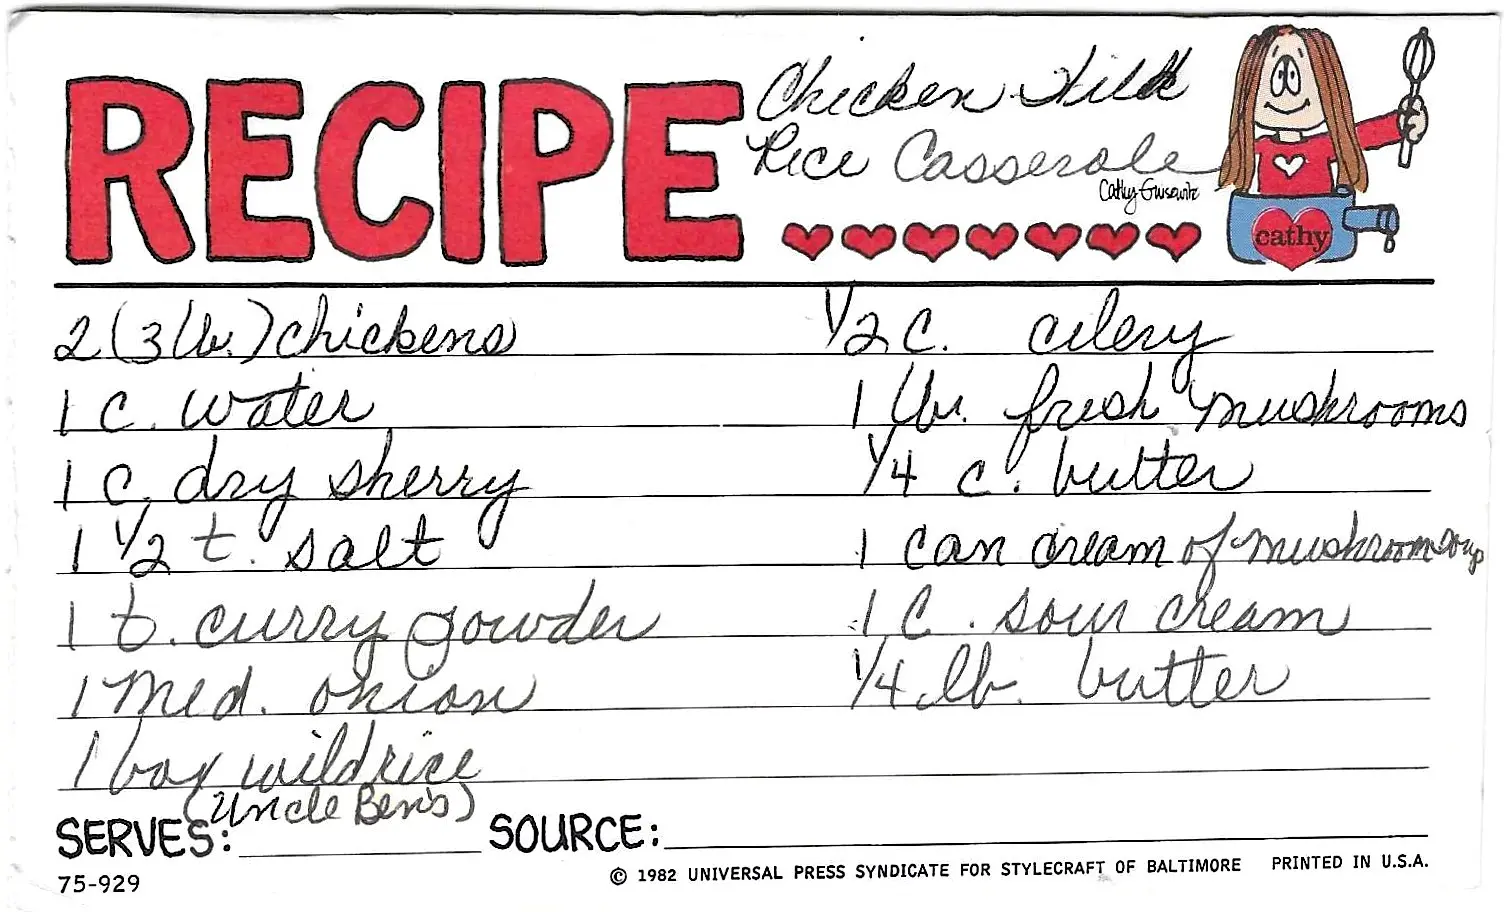 RECIPE
Chicken Wild
Rice Casserole
Cathy Guisewite
cathy
2 (3 lb.) chickens
1 c. water
1 c. dry sherry
1 1/2 t. salt
1 t. curry powder
1 med. onion
1 box wild rice
(Uncle Ben's)
1/2 c. celery
1 lb. fresh mushrooms
1/4 c. butter
1 can cream of mushroom soup
1 c. sour cream
1/4 lb. butter
SERVES:
SOURCE:
75-929
© 1982 UNIVERSAL PRESS SYNDICATE FOR STYLECRAFT OF BALTIMORE PRINTED IN U.S.A.